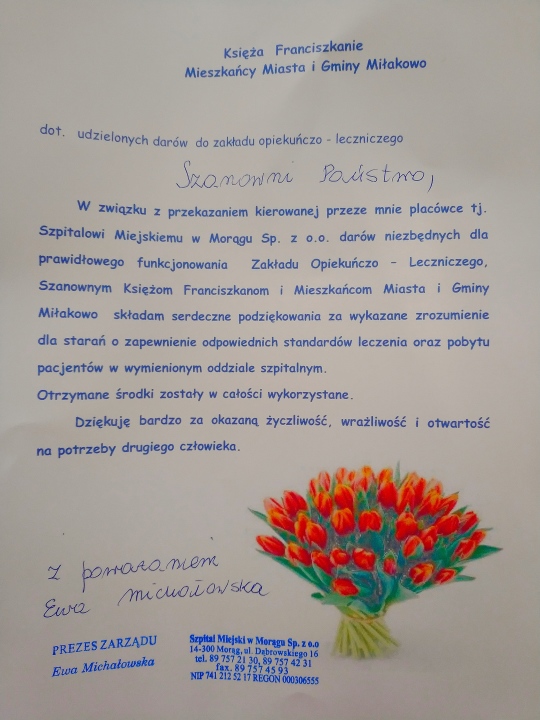 Księża Franciszkanie
Mieszkańcy Miasta i Gminy Miłakowo
dot. udzielonych darów do zakładu opiekuńczo - leczniczego
Szanowni Państwo,
W związku z przekazaniem kierowanej przeze mnie placówce tj.
Szpitalowi Miejskiemu w Morągu Sp. z o.o. darów niezbędnych dla
prawidłowego funkcjonowania Zakładu Opiekuńczo – Leczniczego,
Szanownym Księżom Franciszkanom i Mieszkańcom Miasta i Gminy
Miłakowo składam serdeczne podziękowania za wykazane zrozumienie
dla starań o zapewnienie odpowiednich standardów leczenia oraz pobytu
pacjentów w wymienionym oddziale szpitalnym.
Otrzymane środki zostały w całości wykorzystane.
Dziękuję bardzo za okazaną życzliwość, wrażliwość i otwartość
na potrzeby drugiego człowieka.
Z poważaniem
Ewa Michałowska
PREZES ZARZĄDU
Ewa Michałowska
Szpital Miejski w Morągu Sp. z o.o
14-300 Morąg, ul. Dąbrowskiego 16
tel. 89 757 21 30, 89 757 42 31
fax. 89 757 45 93
NIP 741 212 52 17 REGON 000306555